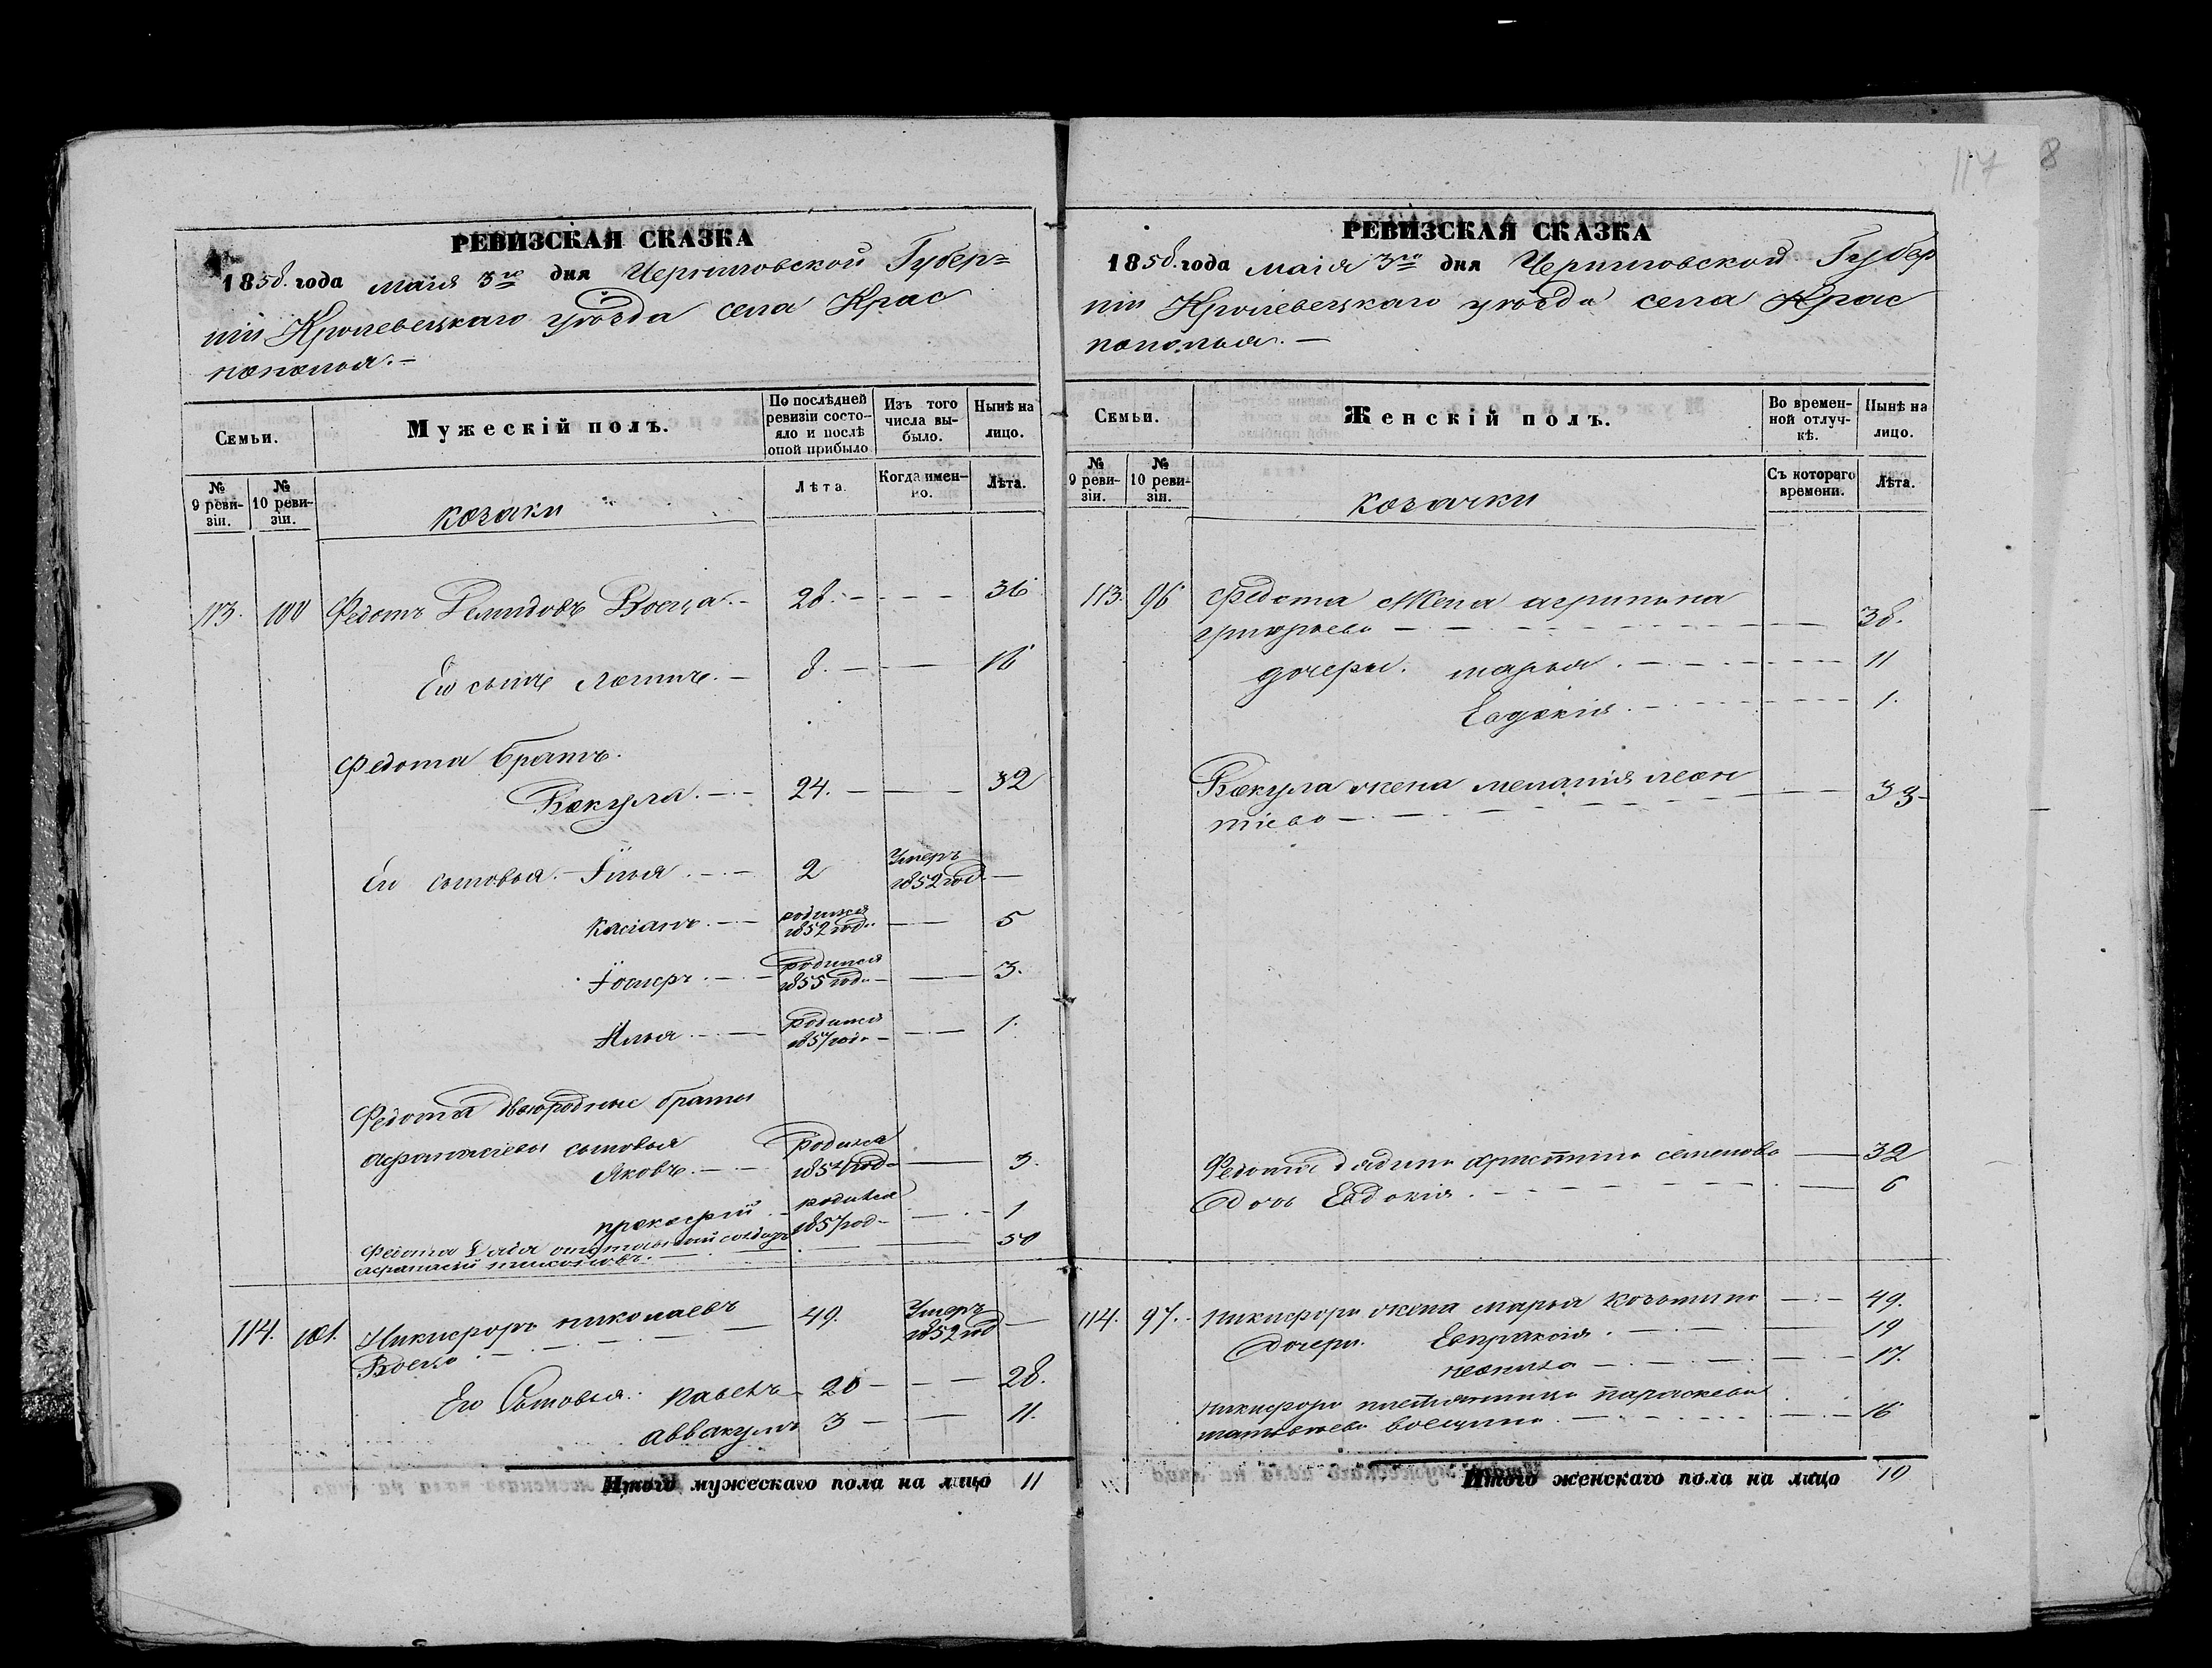 117
8
РЕВИЗСКАЯ СКАЗКА
1858. года маія 3го дня Черниговской Губер=
ніи Кролевецкаго уѣзда села Крас
нополья. –
Семьи.
Мужескій полъ.
По послѣдней ревизіи состо- яло и послѣ оной прибыло
Изъ того числа вы- было.
Нынѣ на лицо.
№ 9 реви- зіи.
№ 10 реви- зіи.
козаки
Лѣта.
Когда имен- но.
Лѣта.
113. 100 Федотъ Демидовъ Воеца. – 28. – – – 36
Его сынъ Логинъ. – 8. – – 16
Федота братъ.
Вокула. – – 24. – – – 32
Его сыновья. – Їлья. – – 2 Умеръ 1852 год. –
Касіанъ. – – родился 1852 год.. – 5
Їосиеръ. – – родился 1855 год.. – 3.
Илья – – родился 1857 год. – – – 1.
Федота двоюродные браты
афанасіевы сыновья
Яковъ. – – родился 1854 год – 3.
прокофій. – родился 1857 год – – – 1
Федота дядя отставный солдатъ 50
афанасій –
114. 101. Никифоръ николаевъ 49. Умеръ 1852 год –
Воеца –
Его Сыновья. Павелъ 20 – – – 28.
аввакумъ 3 – – 11.
Итого мужескаго пола на лицо 11
РЕВИЗСКАЯ СКАЗКА
1858. года маія 3го дня Черниговской Губер
ніи Кролевецкаго уѣзда села Крас
нополья. –
Семьи.
Женскій полъ.
Во времен- ной отлуч- кѣ.
Нынѣ на лицо.
№ 9 реви- зіи.
№ 10 реви- зіи.
козачки
Съ котораго времени.
Лѣта.
113. 96 Федота жена агрипина
григорьева – – – 38.
дочери. марья. – – – 11
Евдокия. – – – 1.
Вокула жена меланія леон
тіева – – – 33 –
Федота дядина христина семенова – 32
дочь Евдокия. – – – 6
114. 97. Никифора жена марья козьмина – – 49.
дочери. Евпраксія. – – – 19
– – – 17.
никифора племянница параскева
матвѣева воецина. – – – 16
Итого женскаго пола на лицо 10